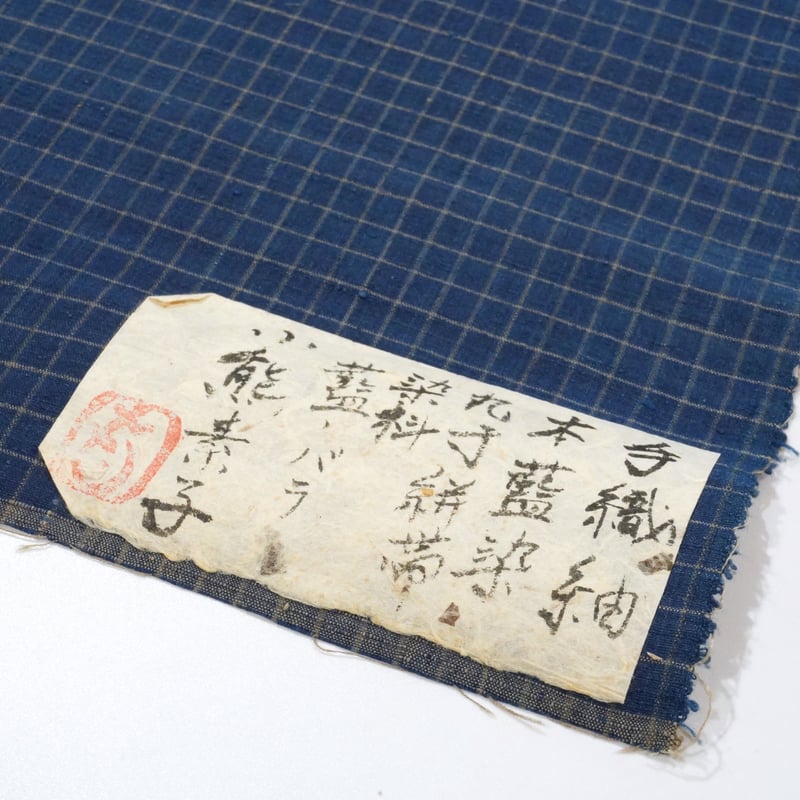 手織紬
本藍染
九寸絣帯
染料
藍、バラ
小熊素子